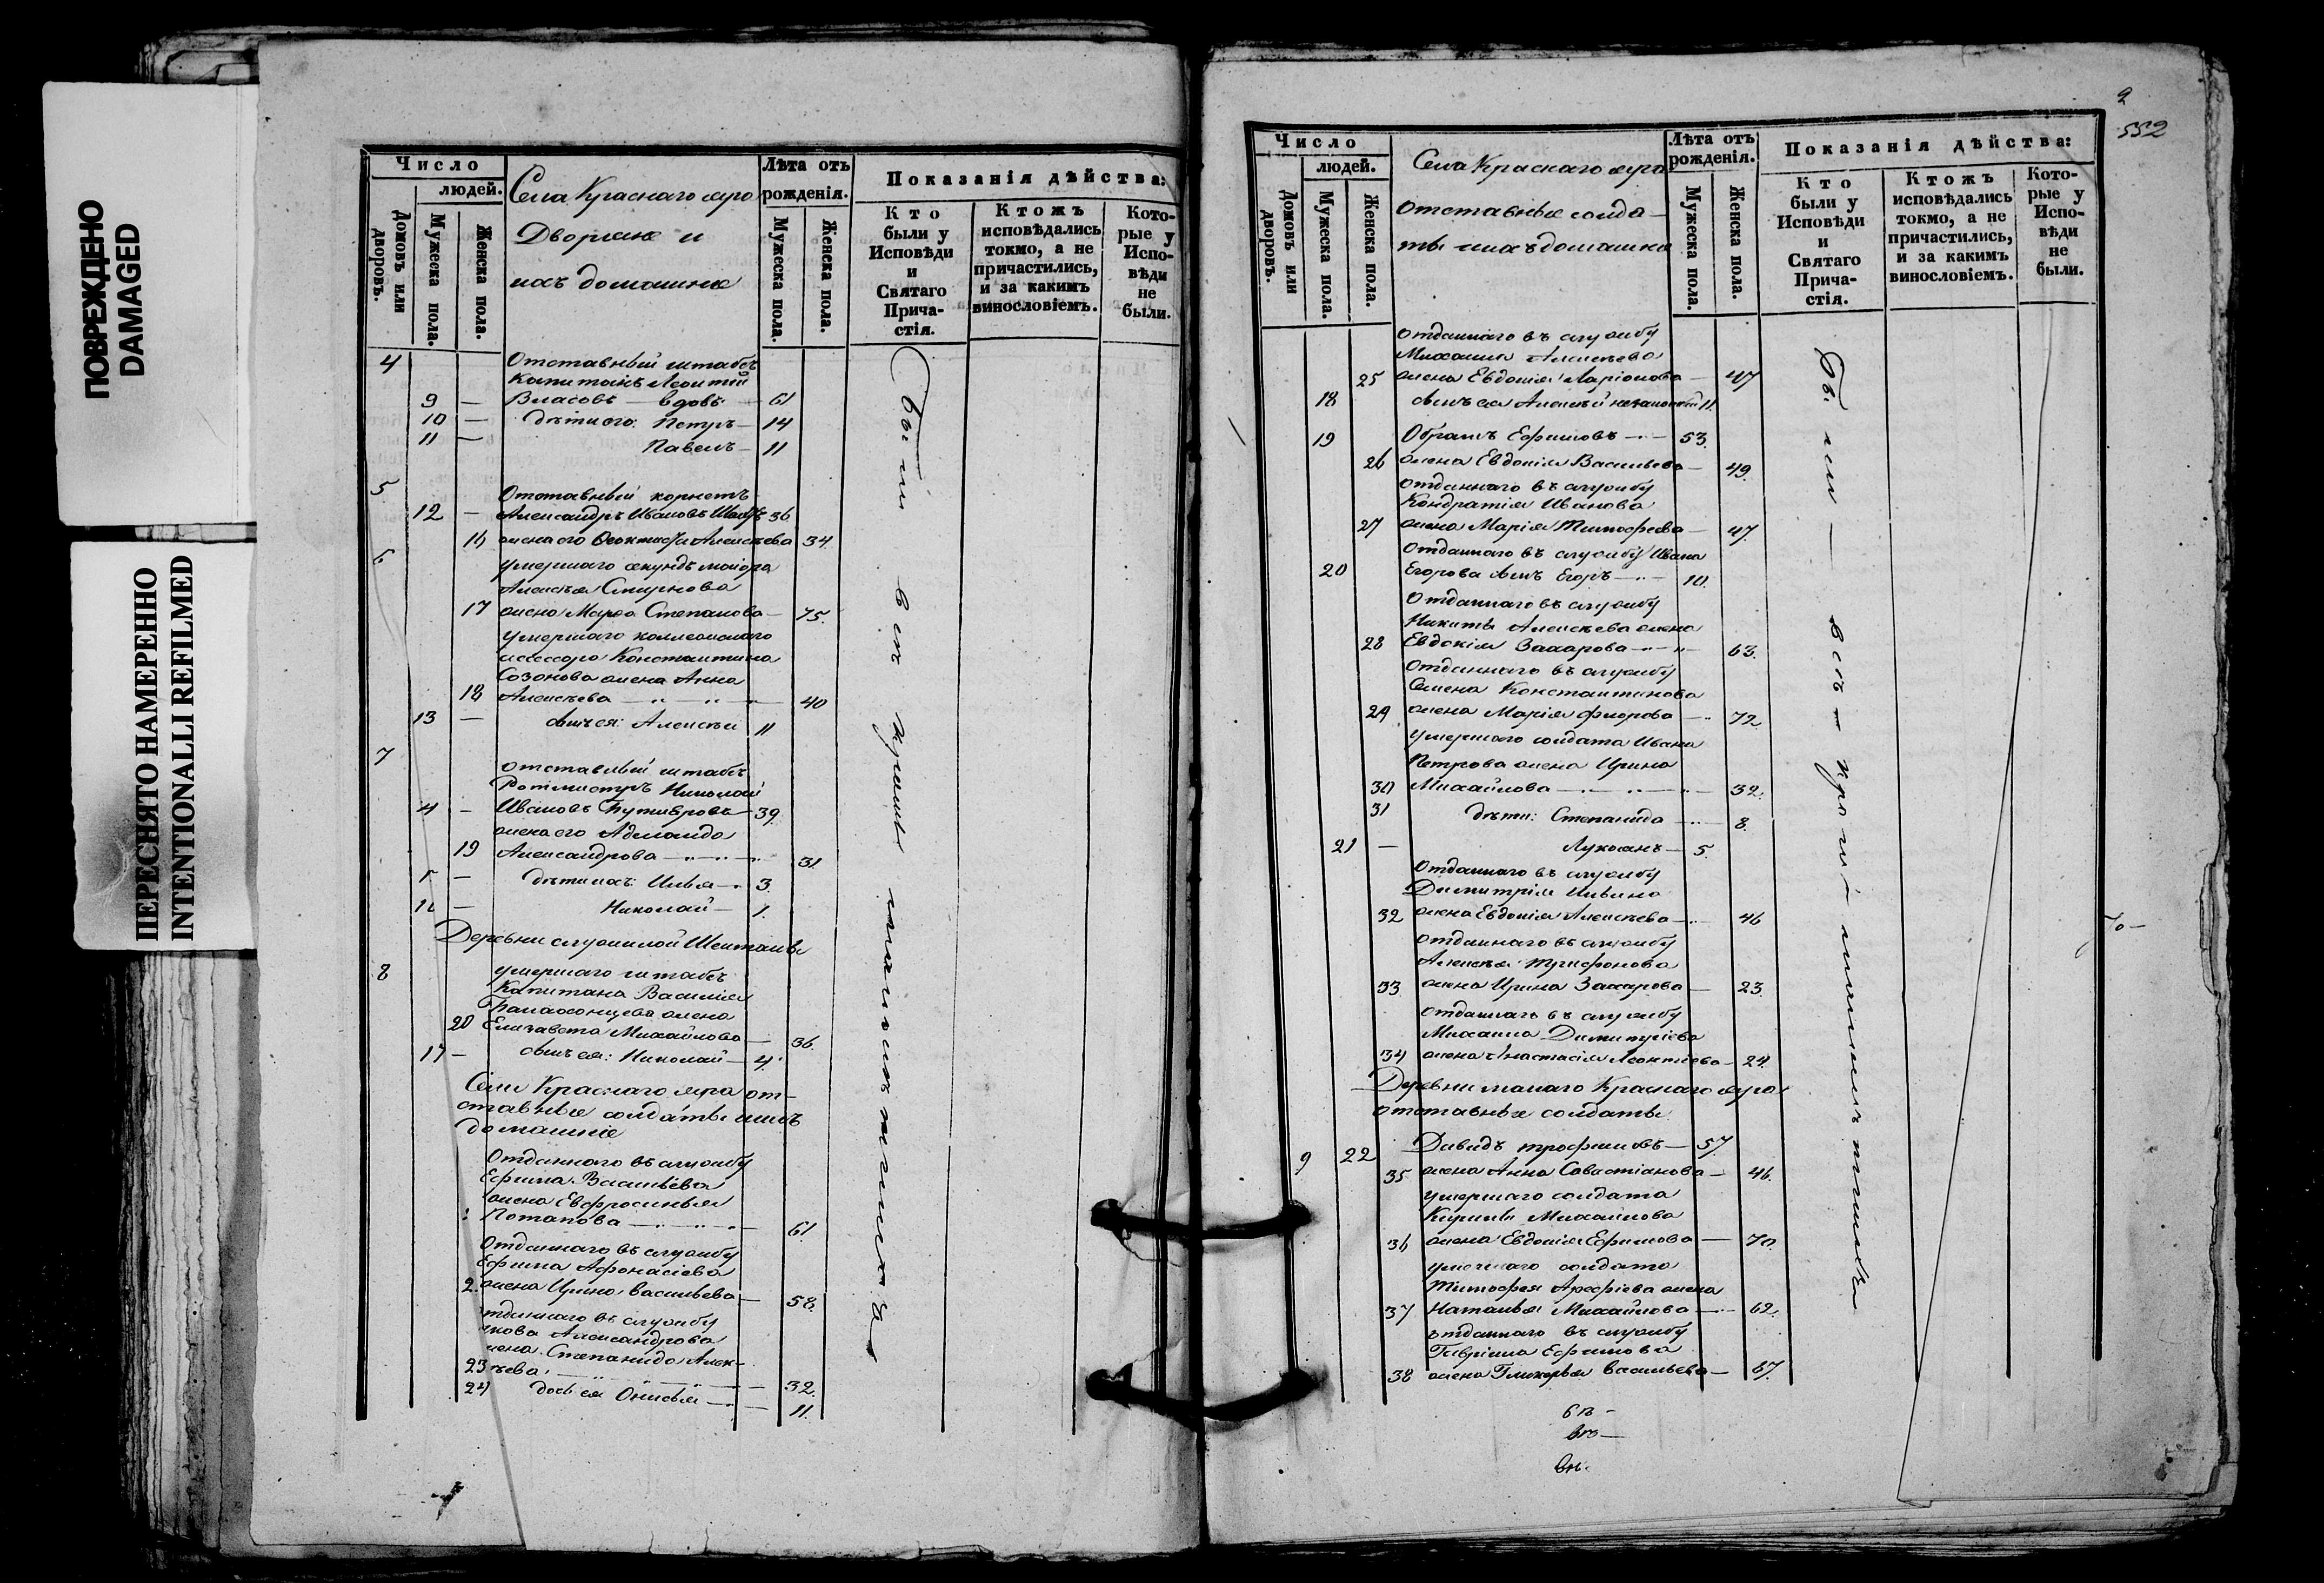 ПОВРЕЖДЕНО
DAMAGED
ПЕРЕСНЯТО НАМЕРЕННО
INTENTIONALLI REFILMED
Число
людей.
Домовъ или дворовъ.
Мужеска пола.
Женска пола.
Села Краснаго яра
Дворяне и
ихъ домашніе
Лѣта отъ
рожденія.
Мужеска пола.
Женска пола.
Показанія дѣйства:
Кто
были у
Исповѣди
и
Святаго
Прича-
стія.
Ктожъ
исповѣдались
токмо, а не
причастились,
и за какимъ
винословіемъ.
Кото-
рые у
Испо-
вѣди
не
были.
4 Отставный штабсъ
Капитанъ Леонтій
9 — Власовъ — вдовъ — 61
10 — дѣти его: Петръ — 14
11 — Павелъ — 11
5 Отставный корнетъ
12 — Александръ Ивановъ 36
16 жена его Алексѣева 34.
6 умершаго секундъ маіора
Алексѣя Смирнова
17 жена Марѳа Степанова — 75.
умершаго коллежскаго
асессора Константина
Созонова жена Анна
18 Алексѣева — 40
13 — сынъ ея: Алексѣй 11
7 отставный штабсъ
Ротмистръ Николай
Ивановъ — 39.
жена его
19 Александрова — 31.
— дѣти ихъ: Илья — 3.
— Николай — 1.
Деревни
8 умершаго штабсъ
Капитана Василія
жена
20 Елизавета Михайлова — 36.
17 — сынъ ея: Николай — 4.
Села Краснаго яра от-
ставные солдаты и ихъ
домашніе
Отданного въ службу
Ефима Васильева
жена Евфросинья
Потапова — 61.
Отданнаго въ службу
Ефима Афонасіева
2 жена Ирина Васильева — 58.
тданнаго въ службу
кова Александрова
жена Степанида Алек-
23 ѣева — 32.
24 дочь ея Онисья — 11.
Были всѣ
2
552
Число
людей.
Домовъ или дворовъ.
Мужеска пола.
Женска пола.
Села Краснаго яра
Отставные солда-
ты и ихъ домашніе
Лѣта отъ
рожденія.
Мужеска пола.
Женска пола.
Показанія дѣйства:
Кто
были у
Исповѣди
и
Святаго
Прича-
стія.
Ктожъ
исповѣдались
токмо, а не
причастились,
и за какимъ
винословіемъ.
Кото-
рые у
Испо-
вѣди
не
были.
Отданнаго въ службу
Михаила Алексѣева
25 жена Евдокія Ларіонова — 47
18 сынъ ея Алексѣй незаконный 11.
19 Обрамъ Ефимовъ — 53.
26 жена Евдокія Васильева — 49.
Отданнаго въ службу
Кондратія Иванова
27 жена Марія Тимофеева — 47.
Отданнаго въ службу Ивана
20 Егорова сынъ Егоръ — 10.
Отданнаго въ службу
Никиты Алексѣева жена
28 Евдокія Захарова — 63.
Отданнаго въ службу
Семена Константинова
29 жена Марія — 72.
умершаго солдата Ивана
Петрова жена Ирина
30 Михайлова — 32.
31 дѣти: Степанида — 8.
21 — Лукіанъ — 5.
Отданнаго въ службу
Димитрія Ильина
32 жена Евдокія Алексѣева — 46
Отданнаго въ службу
Алексѣя Трифонова
33 жена Ирина Захарова — 23.
Отданнаго въ службу
Михаила Димитріева
34 жена Анастасія Леонтіева — 24.
Деревни малаго Краснаго яра
отставные солдаты
9 22 Давидъ Трофимовъ — 57.
35 жена Анна Савастіанова — 46.
умершаго солдата
Кирилы Михайлова
36 жена Евдокія Ефимова — 70.
умершаго солдата
Тимофея жена
37 Наталья Михайлова — 62.
отданнаго въ службу
Гавріила Ефимова
38 жена Гликерья Васильева — 67.
Были — всѣ